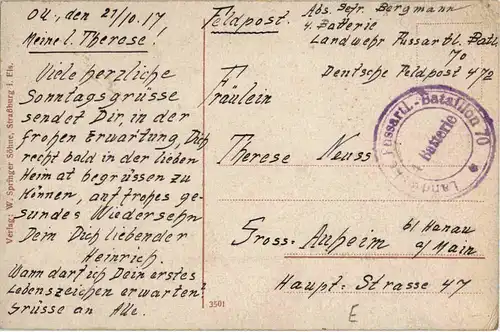 O.U., den 21/10.17
Meine l. Therese!
Viele herzliche
Sonntagsgrüsse
sendet Dir, in der
frohen Erwartung, Dich
recht bald in der lieben
Heimat begrüssen zu
Können, auf frohes ge-
sundes Wiedersehn
Dein Dich liebender
Heinrich.
Wann darf ich Dein erstes
Lebenszeichen erwarten?
Grüsse an Alle.
Verlag: W. Springer Söhne, Straßburg i. Els.
3501
Feldpost.
Abs. Gefr. Bergmann
4. Batterie
Landwehr Fussartl. Batl.
70
Deutsche Feldpost 472
Fräulein
Therese Neuss
Gross-Auheim b/ Hanau
a/ Main
Haupt-Strasse 47
Fussartl.-Bataillon 70
Batterie
E